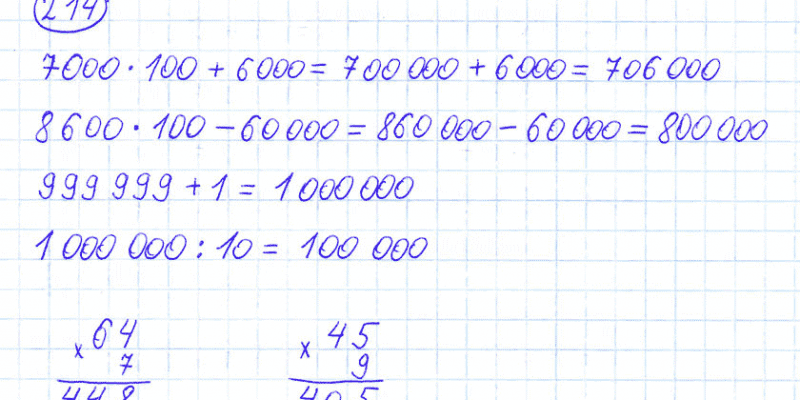 214
7000 · 100 + 6000 = 700 000 + 6000 = 706 000
8600 · 100 - 60 000 = 860 000 - 60 000 = 800 000
999 999 + 1 = 1 000 000
1 000 000 : 10 = 100 000
64 45
x 7 x 9
448 405